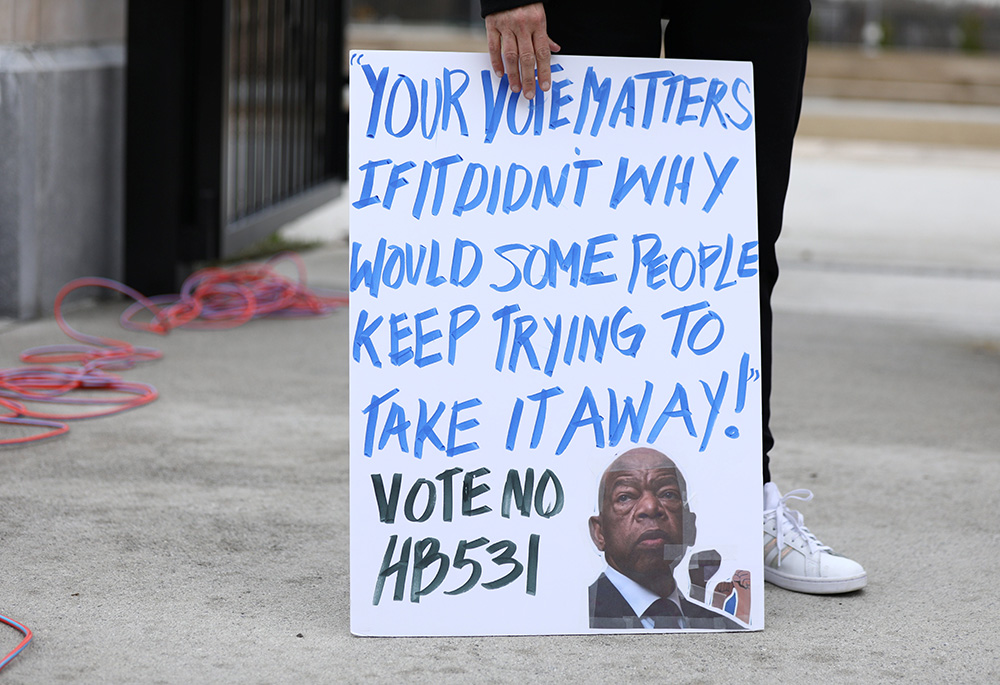 "YOUR VOTE MATTERS
IF IT DIDN'T WHY
WOULD SOME PEOPLE
KEEP TRYING TO
TAKE IT AWAY!"
VOTE NO
HB531